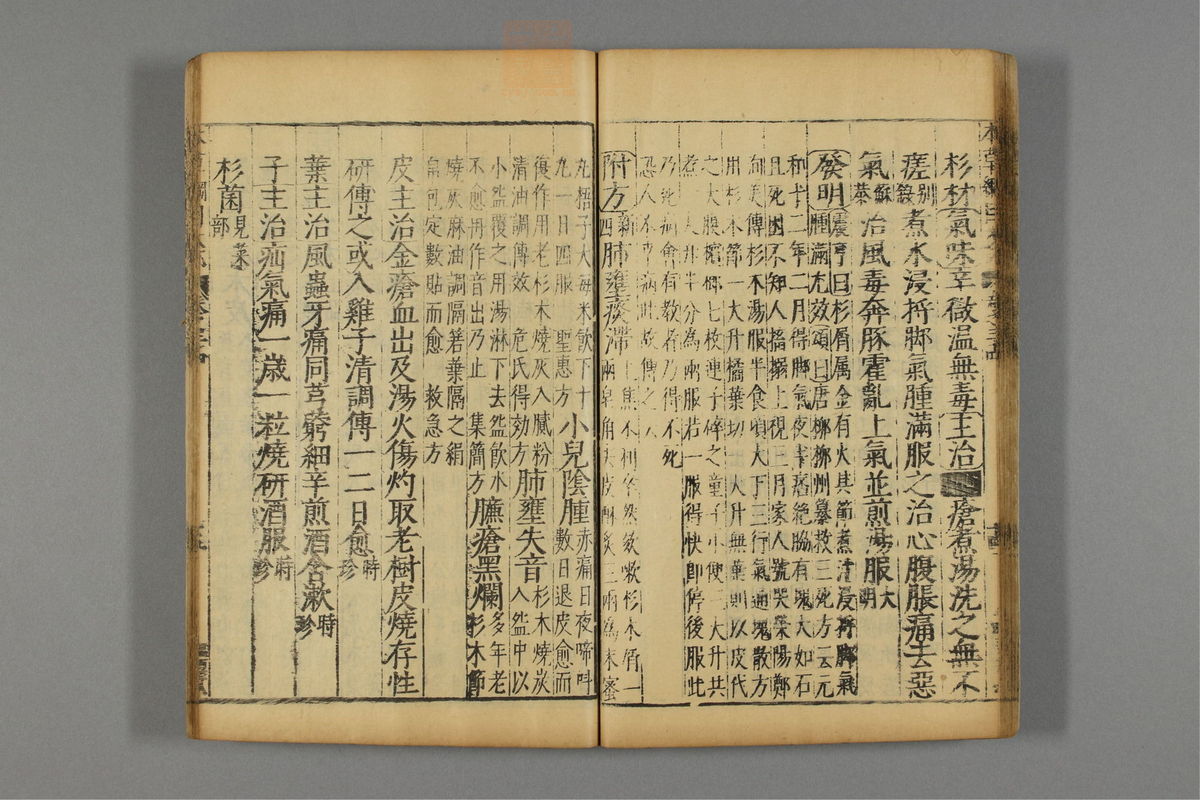 杉材氣味辛微溫無毒主治瘡煮湯洗之無不
瘥别錄煮水浸捋脚氣腫滿服之治心腹脹痛去惡
氣蘇恭治風毒奔豚霍亂上氣並煎湯服大明
發明震亨曰杉屑属金有火其節煮汁浸捋脚氣
腫滿尤效頌曰唐柳柳州纂救三死方云元
和十二年二月得脚氣夜半痞絶脇有塊大如石
且死困不知人搐搦上視三月家人號哭滎陽鄭
洵美傳杉木湯服半食頃大下三行氣通塊散方
用杉木節一大升橘葉切一大升無葉則以皮代
之大腹檳榔七枚連子碎之童子小便三大升共
煮一大升半分為兩服若一服得快即停後服此
乃死病會有教者乃得不死
恐人不幸病此故傳之
附方新四肺壅痰滯上焦不利卒然欬嗽杉木屑一
兩皂角去皮酥炙三兩為末蜜
丸梧子大每米飲下十
丸一日四服 聖惠方
小兒陰腫赤痛日夜啼叫
數日退皮愈而
復作用老杉木燒灰入膩粉
清油調傳效 危氏得効方
肺壅失音杉木燒炭
入盌中以
小盌覆之用湯淋下去盌飲水
不愈再作音出乃止 集簡方
臁瘡黑爛多年老
杉木節
燒灰麻油調隔箬葉隔之絹
帛包定數貼而愈 救急方
皮主治金瘡血出及湯火傷灼取老樹皮燒存性
研傳之或入雞子清調傳一二日愈時珍
葉主治風蟲牙痛同芎藭細辛煎酒含漱時珍
子主治疝氣痛一歲一粒燒研酒服時珍
杉菌見菜部